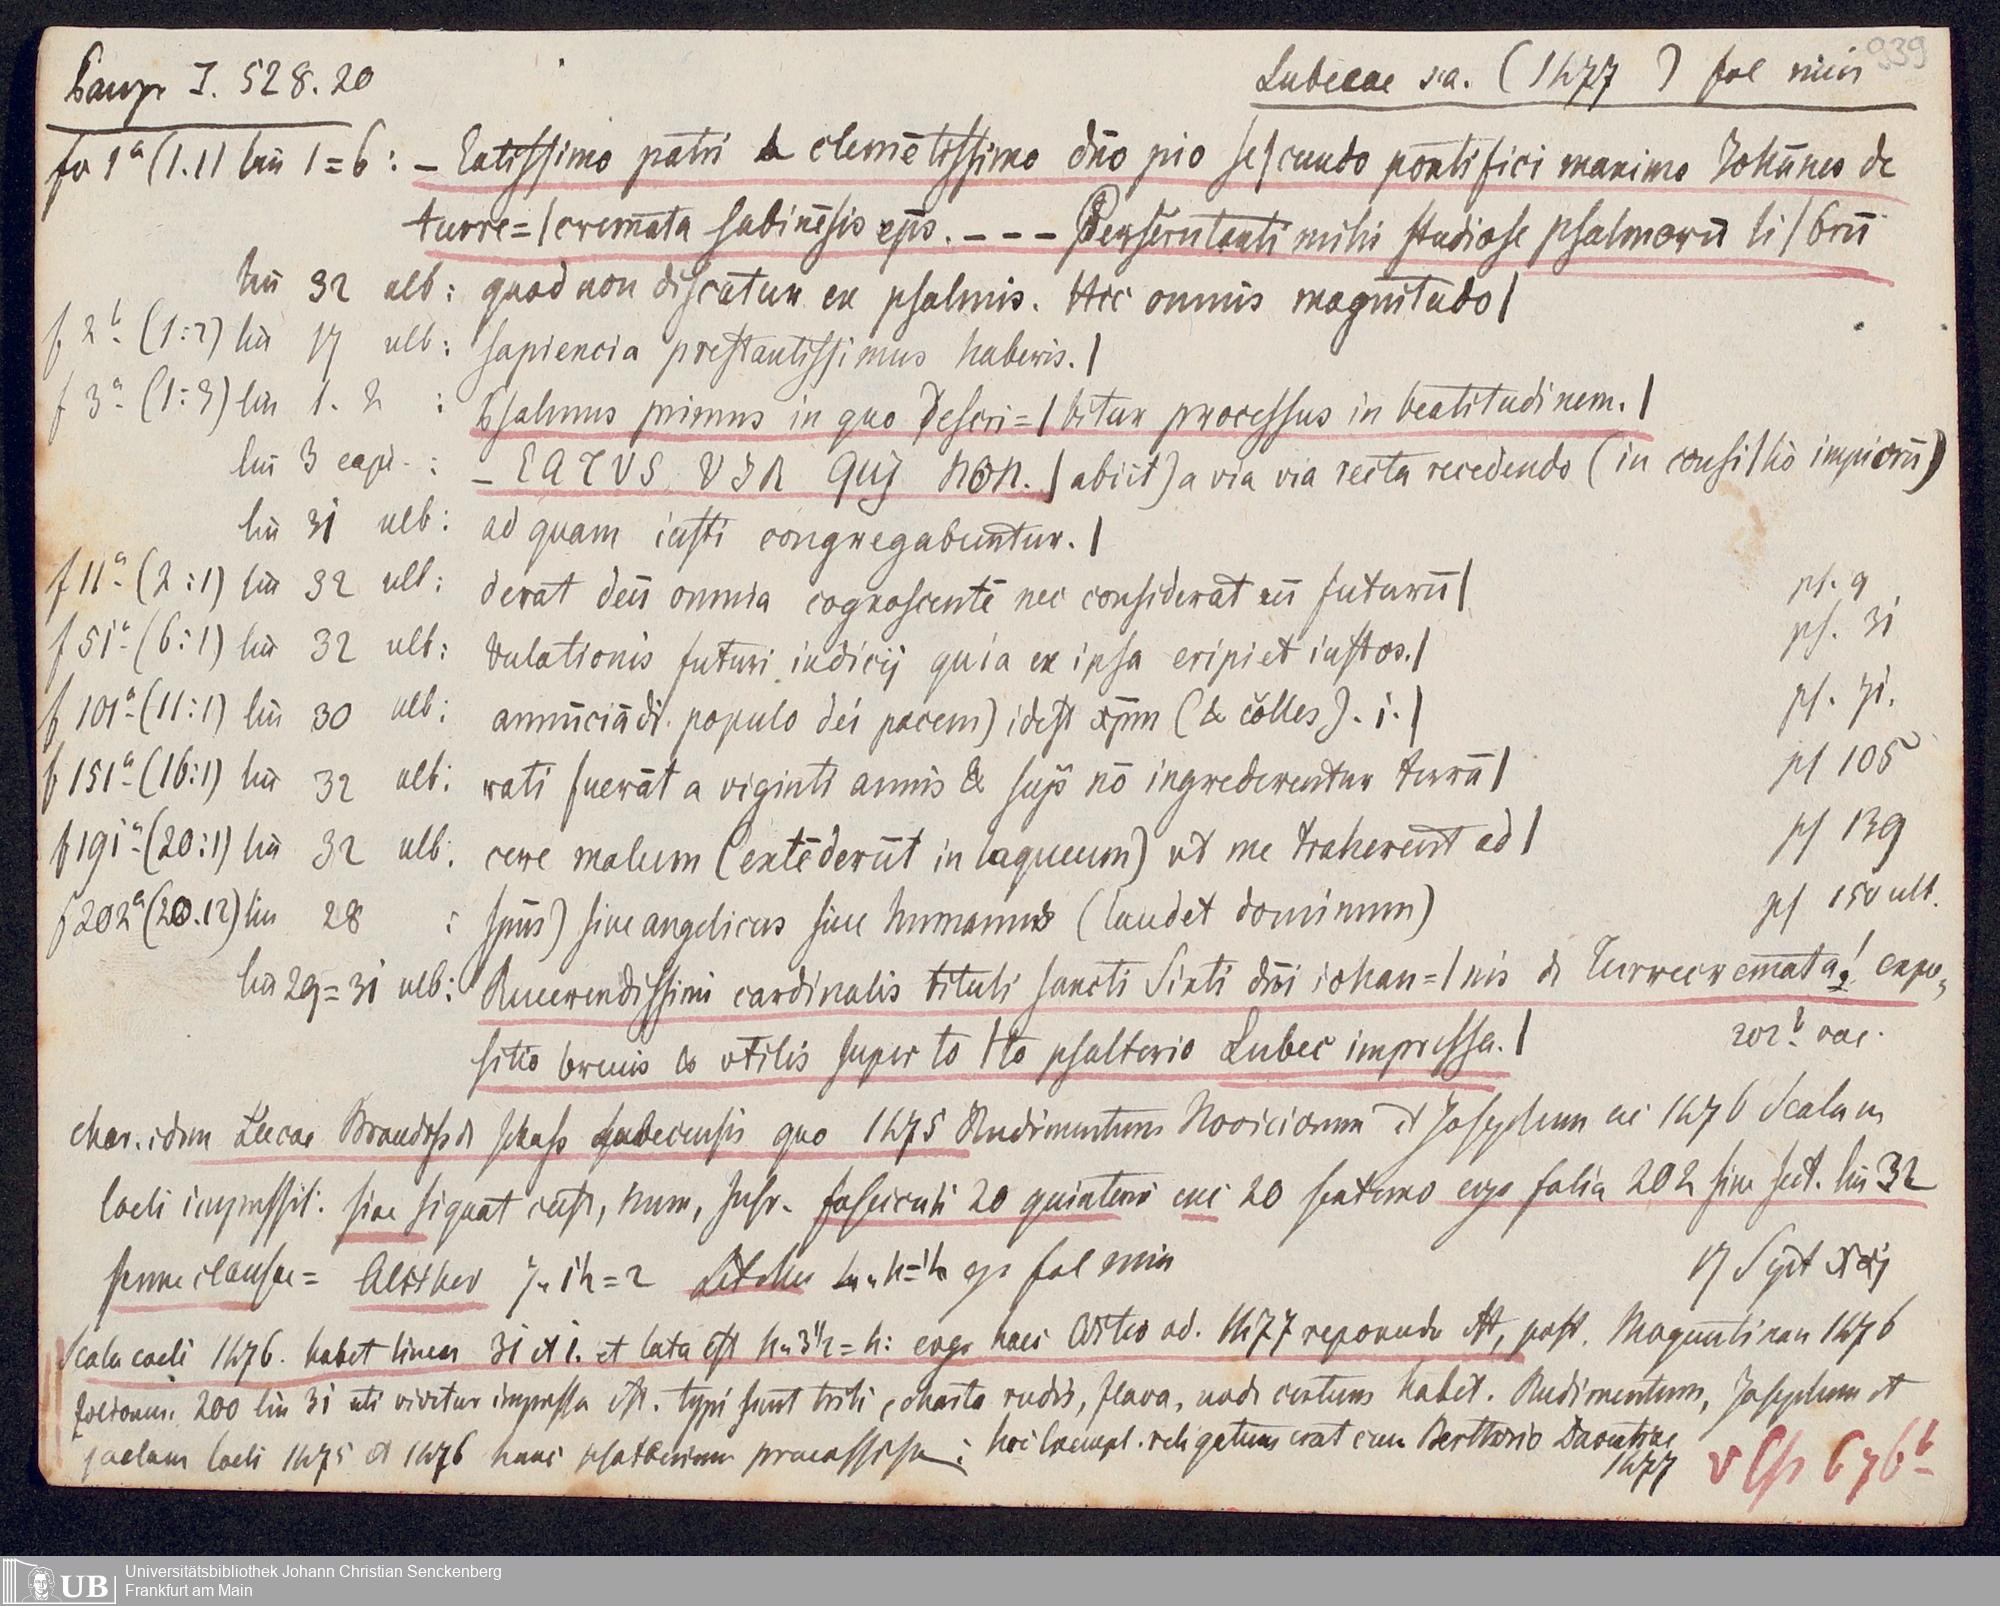 Panzr I. 528. 20
Lubecae s.a. (1477) fol min
939
fo 1a (1.1) lin 1=6: – Eatissimo patri & clemētissimo dn̄o pio se/cundo pontifici maximo Johānes de
turre=/cremata sabinēsis ep̄s. – – – Perscrutanti mihi studiose psalmorū li/brū
lin 32 ulb: quod non discatur ex psalmis. Hec omnis magnitudo/
f 2b (1:2) lin 17 ulb: sapiencia prestantissimus haberis./
f 3a (1:3) lin 1. 2 : Psalmus primus in quo descri=/bitur processus in beatitudinem./
lin 3 capi. : – EATVS VIR QUI NON. /abiit) a via via recta recedendo (in consi/lio impiorū)
lin 31 ulb: ad quam iusti congregabuntur./
f 11a (2:1) lin 32 ulb: derat deū omnia cognoscentē nec considerat eū futurū/ ps. 9
f 51a (6:1) lin 32 ulb: bulationis futuri iudicij quia ex ipsa eripiet iustos./ ps. 31
f 101a (11:1) lin 30 ulb: annūciādi populo dei pacem) idest xpm (& colles). i./ ps. 71.
f 151a (16:1) lin 32 ulb: rati fuerāt a viginti annis & sup̄ nō ingrederentur terrā/ ps 105
f 191a (20:1) lin 32 ulb: cere malum (extēderūt in laqueum) ut me traherent ad/ ps 139
f 202a (20.12) lin 28 : sp̄us) siue angelicus siue humanus (laudet dominum) ps 150 ult.
lin 29=31 ulb: Reuerendissimi cardinalis tituli sancti Sixti dn̄i iohan=/nis de Turrecremata! expo-
sitio breuis & vtilis super to/to psalterio Lubec impressa./ 202b vac.
char. idem Lucae Brandis de schass Lubecensis quo 1475 Rudimentum Noviciorum et Josephum ac 1476 Scalam
coeli impressit: sine signat cust, num, subscr. fasciculi 20 quinterni ac 20 sexterno ergo folia 202 sine sect. lin 32
penne clausae= 7„ 1½=2 fol min 17 Sept
Scala coeli 1476. habet lineas 31 et i. et lata est 4„ 3½=4: ergo haec editio ad. 1477 reponenda est, post. Maguntinam 1476
200 lin 31 uti videtur impressa est. typi sunt triti, charta rudis, flava, habet. Rudimentum, Josephum et
scalam coeli 1475 et 1476 hanc psalterium praecessisse: hoc exempl. religatum erat cum Berthorio Daventriae
1477
v 676b
Universitätsbibliothek Johann Christian Senckenberg
Frankfurt am Main
UB